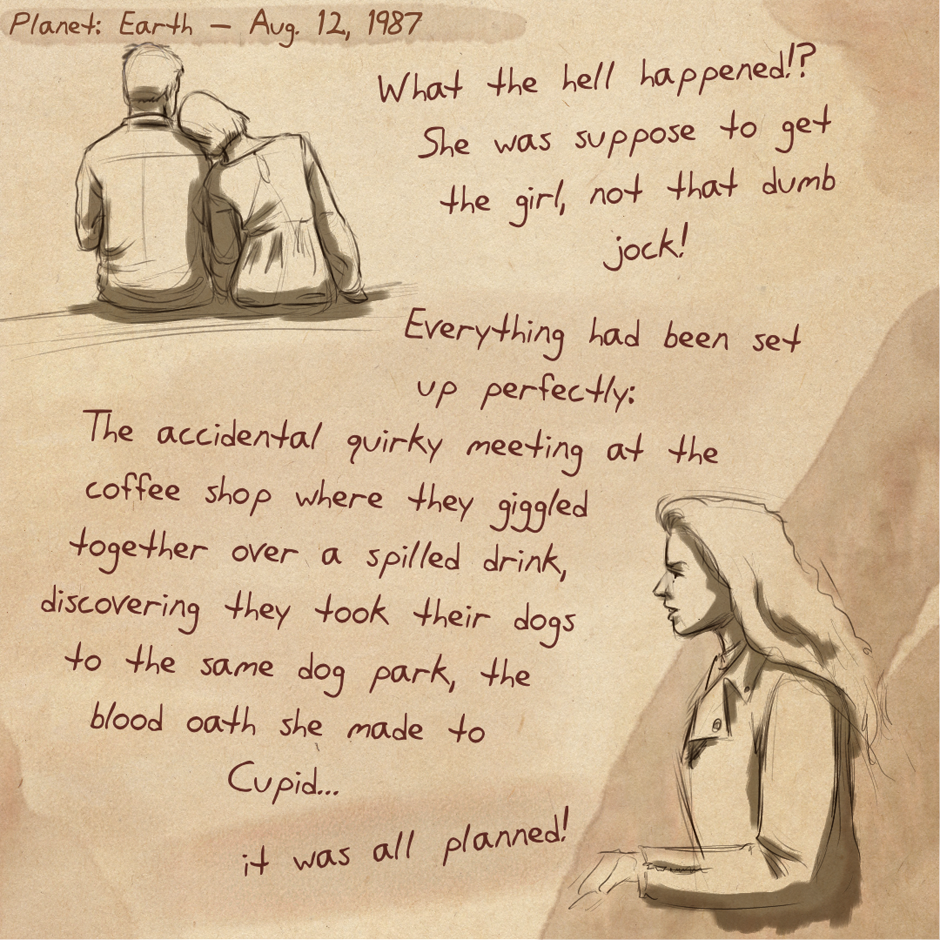 Planet: Earth — Aug. 12, 1987
What the hell happened!?
She was suppose to get
the girl, not that dumb
jock!
Everything had been set
up perfectly:
The accidental quirky meeting at the
coffee shop where they giggled
together over a spilled drink,
discovering they took their dogs
to the same dog park, the
blood oath she made to
Cupid...
it was all planned!